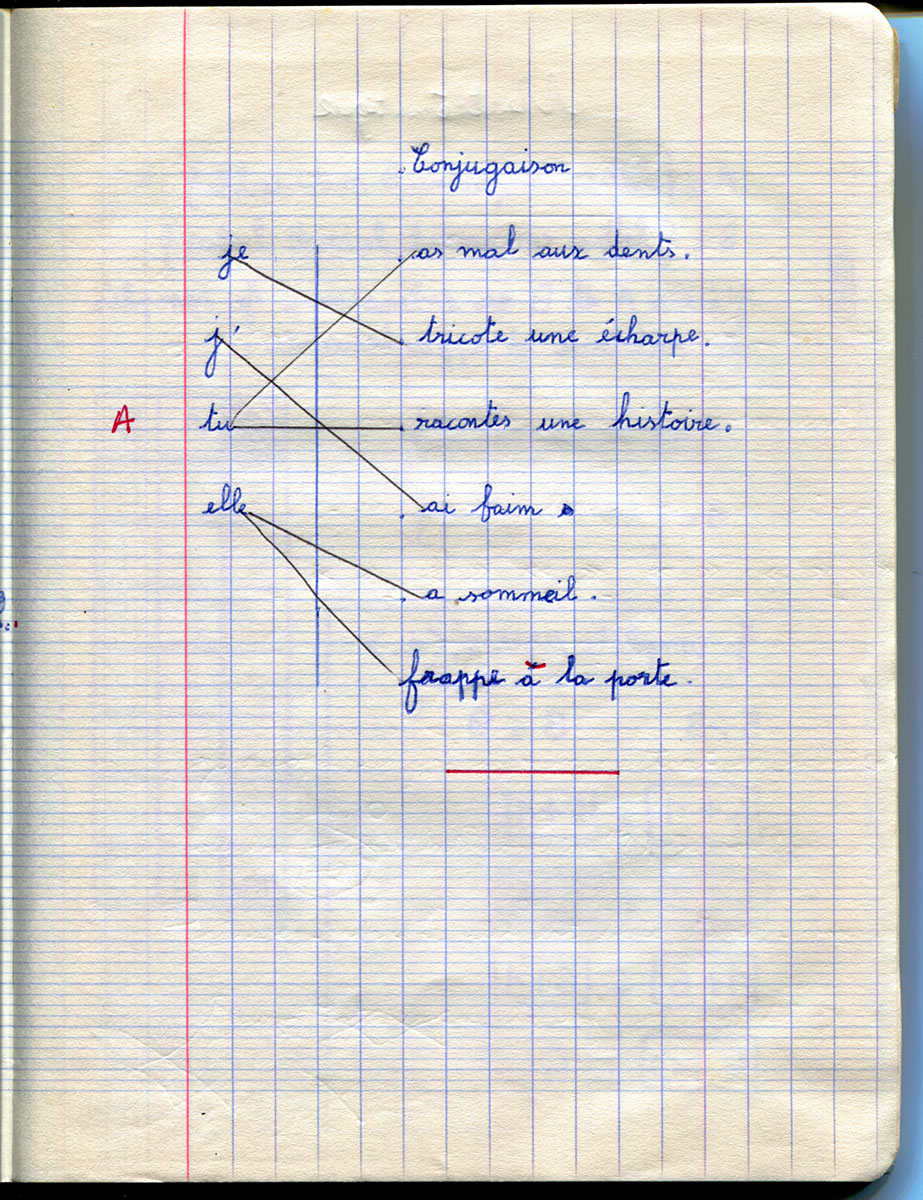 Conjugaison
je as mal aux dents.
j' tricote une écharpe.
A tu racontes une histoire.
elle ai faim.
a sommeil.
frappe à la porte.